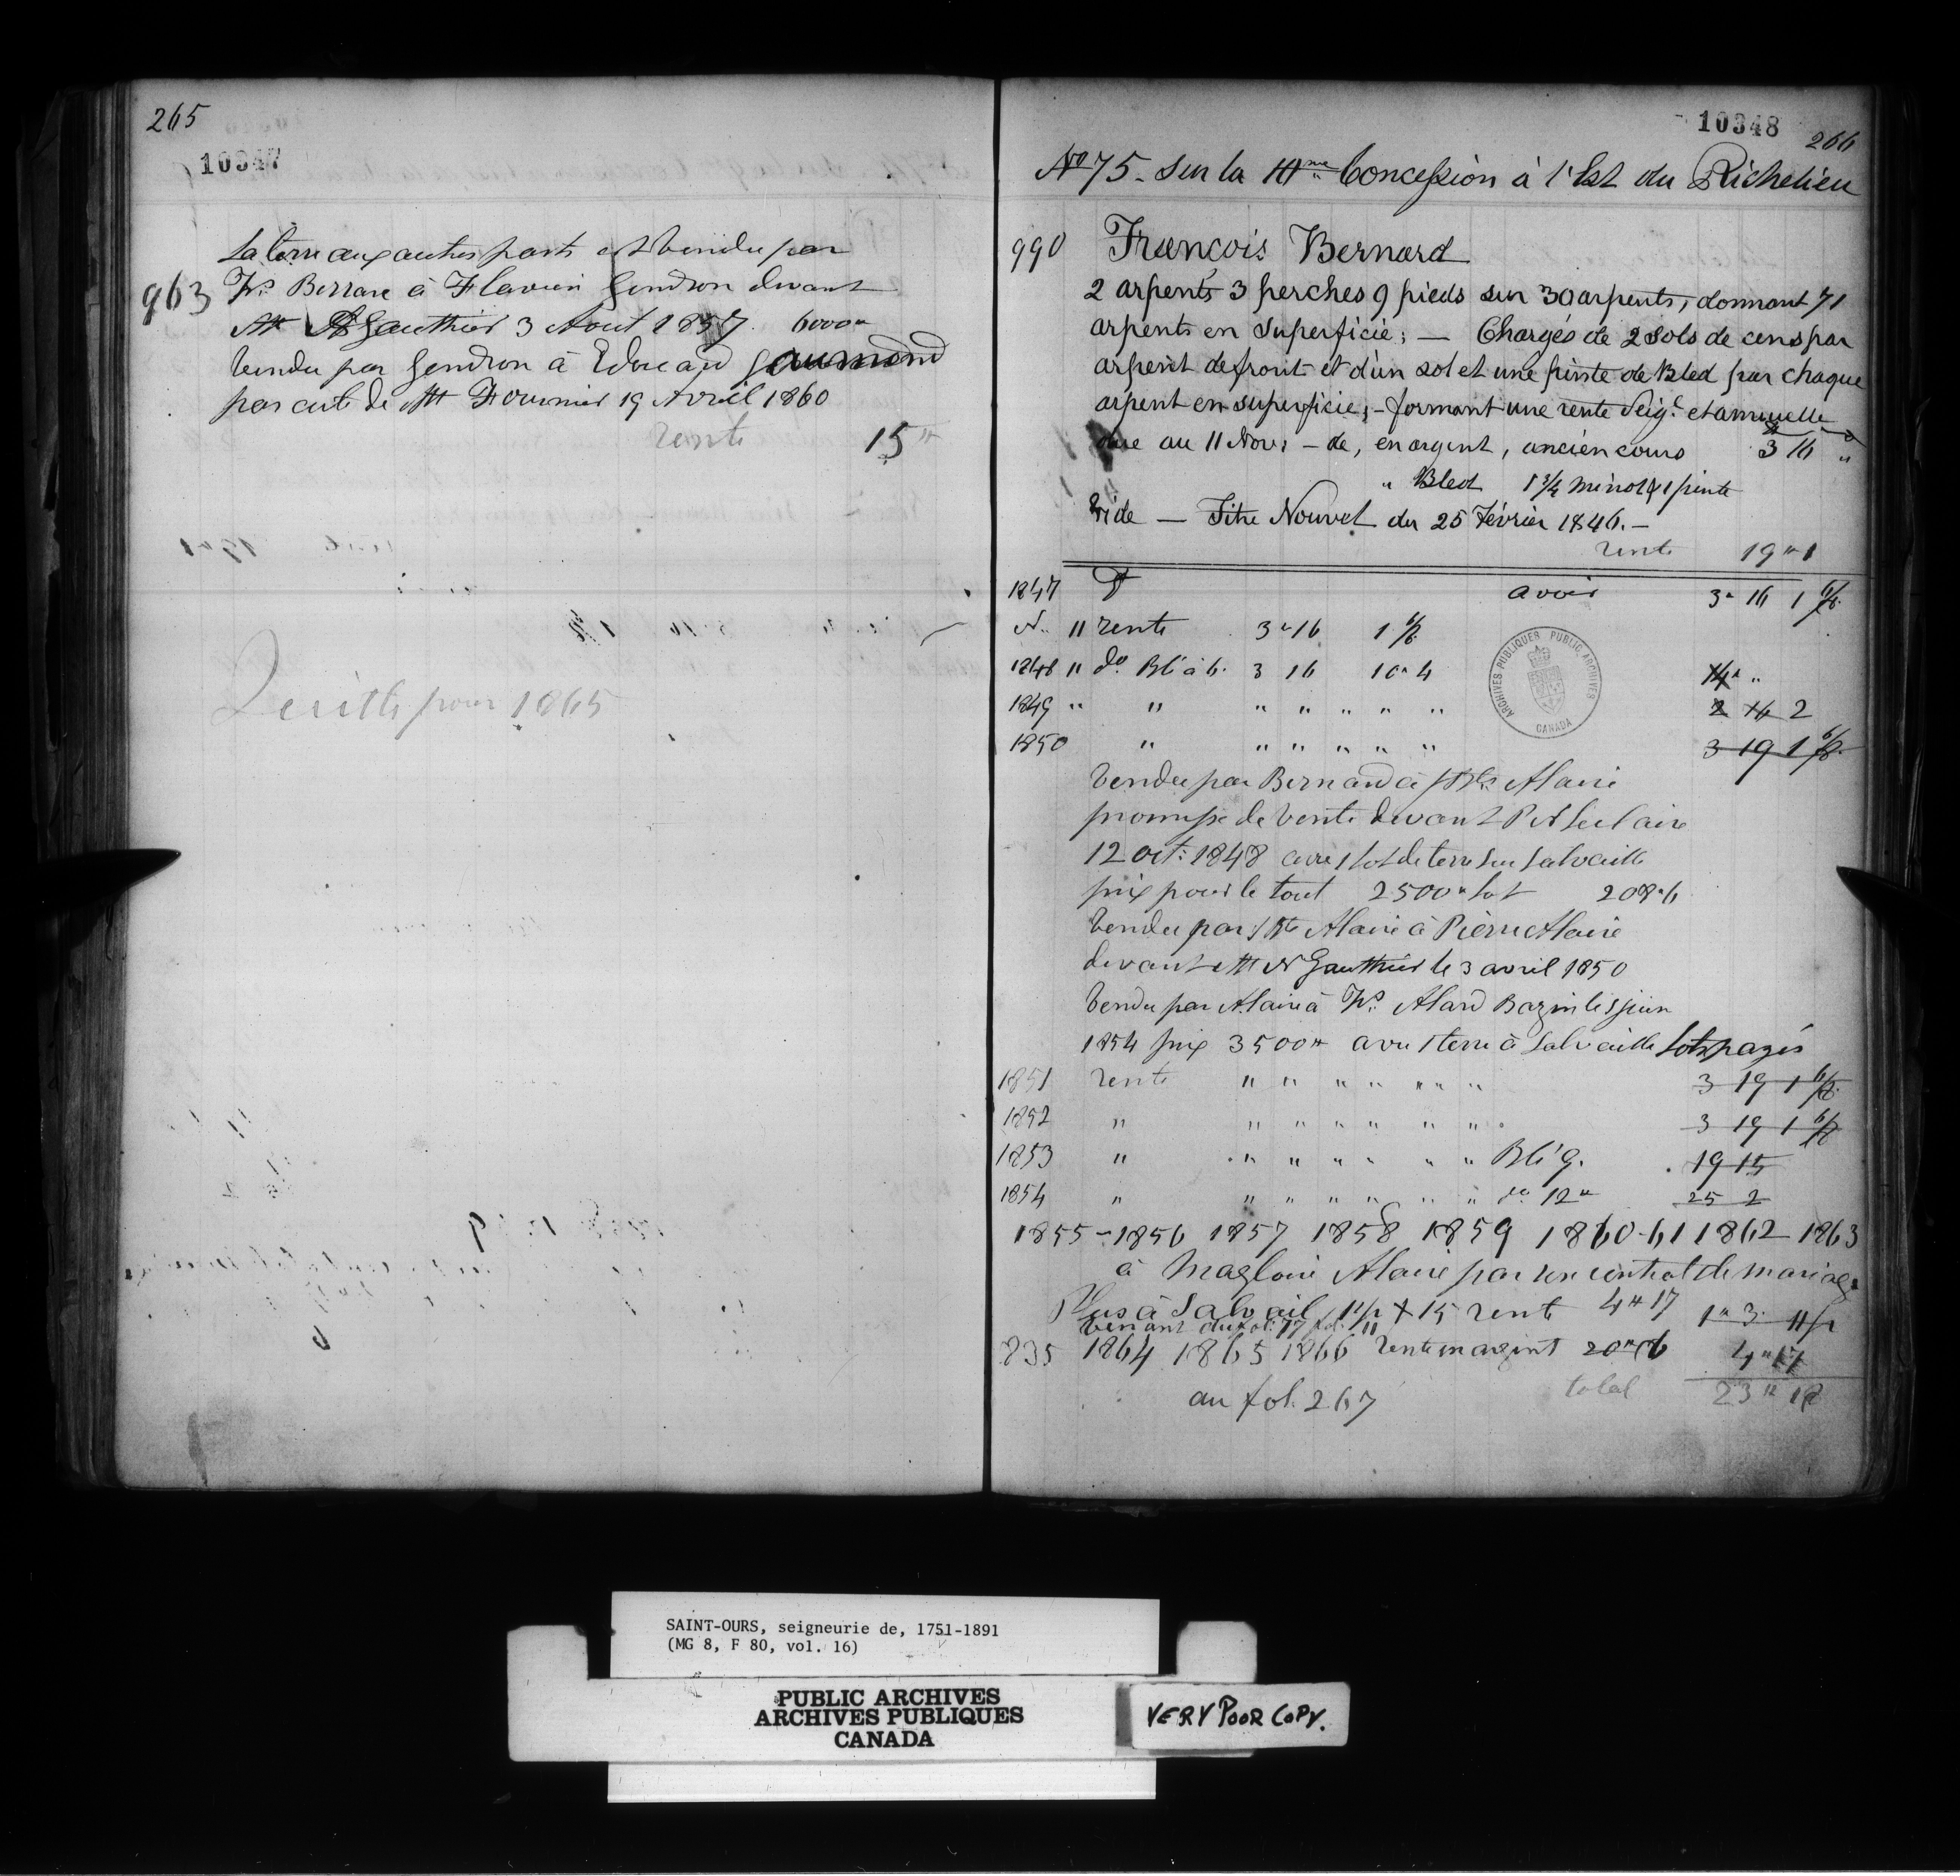 265
10347
La terre aux autres parts est vendu par
963 Frs Berrare à Flavien Gendron devant
Mt A Gauthier 3 Aout 1857 6000"
Vendu par Gendron à Edouard Gaumond
par acte de Mt Fournier 19 Avril 1860
rente 15"
pour 1865
10348 266
No 75. Sur la IIIme Concession à l'Est du Richelieu
990 François Bernard
2 arpents 3 perches 9 pieds sur 30 arpents, donnant 71
arpents en superficie; — Chargés de 2 sols de cens par
arpent de front et d'un sol et une pinte de Bled par chaque
arpent en superficie; - formant une rente Seigl. et annuelle
due au 11 Nov: - de, en argent, ancien cours 3 16 "
" Bled 1 3/4 minot & 1 pinte
Vide — Titre Nouvel du 25 Février 1846. —
rente 19" 1
1847 avoir 3" 16 1
N.. 11 rente 3" 16 1
1848 11 do Blé à 6. 3 16 10" 4 14" "
1849 " " " " " " " 2 16 2
1850 " " " " " " 3 19 1
Vendu par Bernard à Alaire
promesse de vente devant P A Leclaire
12 oct: 1848 avec 1 lot de terre sur Salvaille
prix pour le tout 2500" lot 208" 6
Vendu par Alaire à Pierre Alaire
devant Mt N Gauthier le 3 avril 1850
Vendu par Alaire à Frs Alard Bazin le 5 juin
1854 prix 3500" avec 1 terre à Salvaille lots payés
1851 rente " " " " " " " 3 19 1
1852 " " " " " " " 3 19 1
1853 " " " " " " " Blé 9. 19 15
1854 " " " " " " " do 12" 25 2
1855 - 1856 1857 1858 1859 1860-61 1862 1863
à Magloire Alaire par son contrat de mariage
Plus à Salvail 1 p X 15 rente 4" 17 1" 3
venant du fol: 77
835 1864 1865 1866 rente en argent 20" 6 4" 17
total 23" 18
au fol. 267
ARCHIVES PUBLIQUES PUBLIC ARCHIVES
CANADA
SAINT-OURS, seigneurie de, 1751-1891
(MG 8, F 80, vol. 16)
PUBLIC ARCHIVES
ARCHIVES PUBLIQUES
CANADA
VERY POOR COPY.